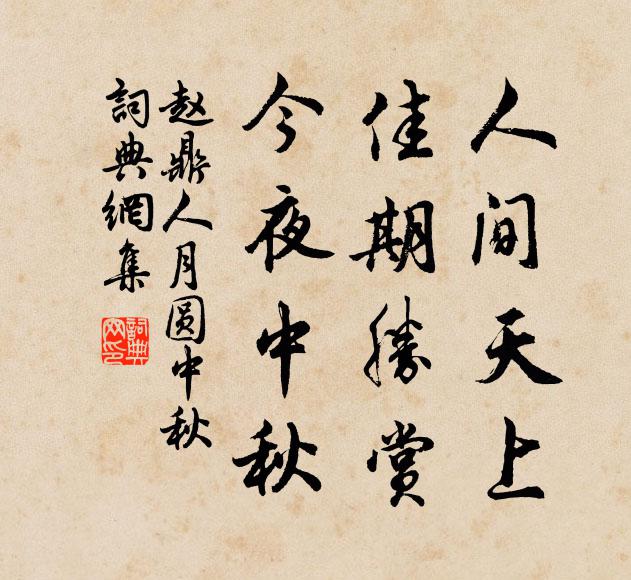 人间天上
佳期勝赏
今夜中秋
赵鼎人月圆中秋
詞典網集
詞典
网印